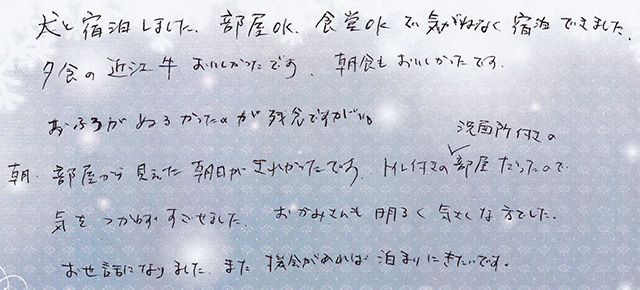 犬と宿泊しました。部屋OK、食堂OKで気がねなく宿泊できました。
夕食の近江牛おいしかったです。朝食もおいしかったです。
おふろがぬるかったのが残念ですが
洗面所付きの
朝、部屋から見えた朝日がきれかったです。トイレ付きの部屋だったので
気をつかわずすごせました。おかみさんも明るく気さくな方でした。
お世話になりました。また機会があれば泊まりにきたいです。